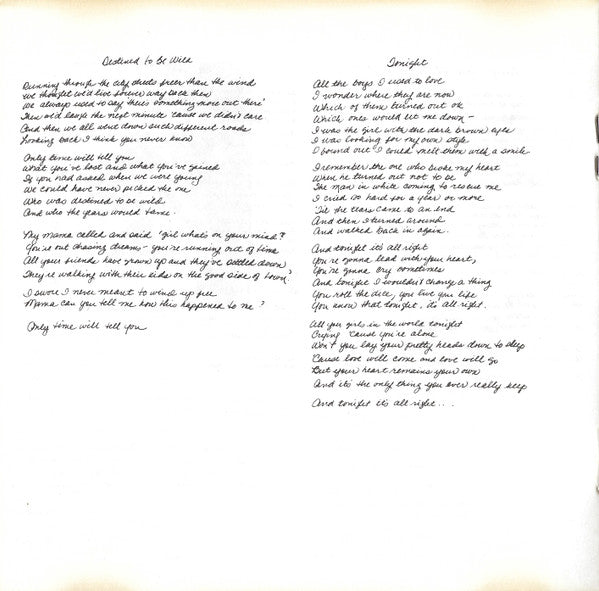 Destined to Be Wild
Running through the city streets freer than the wind
We thought we'd live forever way back then
We always used to say "there's something more out there"
Then we'd laugh the next minute 'cause we didn't care
And then we all went down such different roads
Looking back I think you never know
Only time will tell you
What you've lost and what you've gained
If you had asked when we were young
We could have never picked the one
Who was destined to be wild
And who the years would tame.
My mama called and said "girl what's on your mind?
You're out chasing dreams - you're running out of time
All your friends have grown up and they've settled down
They're walking with their kids on the good side of town."
I swore I never meant to wind up free
Mama can you tell me how this happened to me?
Only time will tell you
Tonight
All the boys I used to love
I wonder where they are now
Which of them turned out ok
Which ones would let me down -
I was the girl with the dark brown eyes
I was looking for my own style
I found out I could melt them with a smile
I remember the one who broke my heart
When he turned out not to be
The man in white coming to rescue me
I cried too hard for a year or more
'Til the tears came to an end
And then I turned around
And walked back in again.
And tonight it's all right
You're gonna lead with your heart,
You're gonna cry sometimes
And tonight I wouldn't change a thing
You roll the dice, you live your life
You know that tonight, it's all right.
All you girls in the world tonight
Crying 'cause you're alone
Won't you lay your pretty heads down to sleep
'Cause love will come and love will go
But your heart remains your own
And it's the only thing you ever really keep
And tonight it's all right...